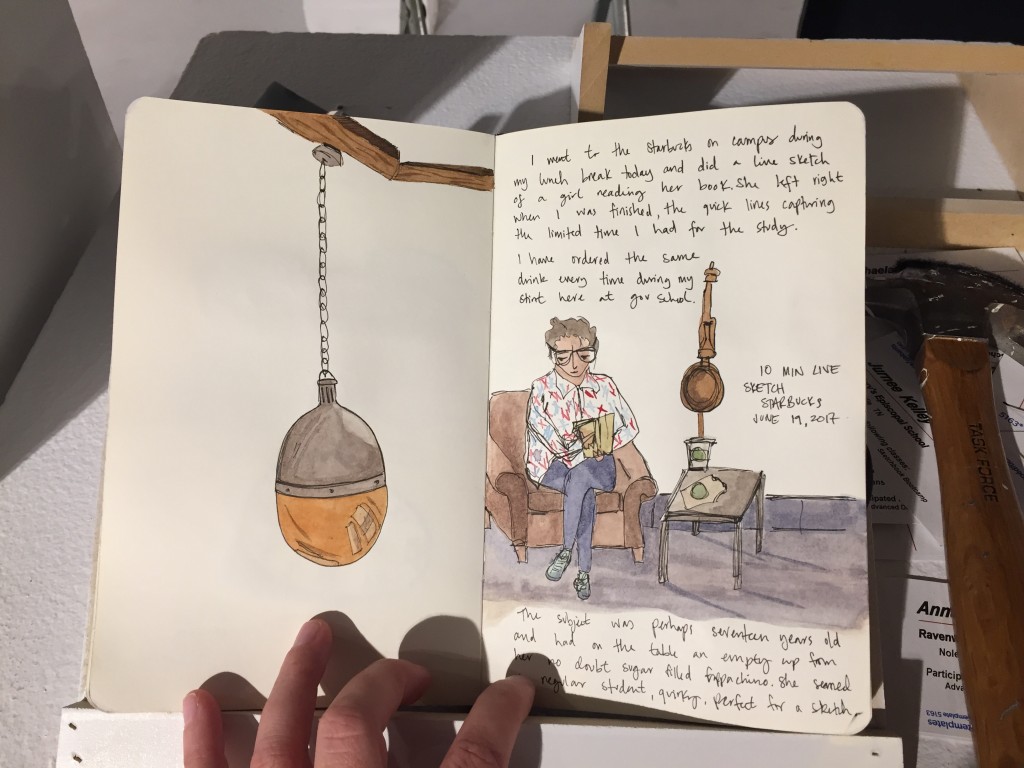 I went to the Starbucks on campus during
my lunch break today and did a line sketch
of a girl reading her book. She left right
when I was finished, the quick lines capturing
the limited time I had for the study.
I have ordered the same
drink every time during my
stint here at gov school.
10 MIN LIVE
SKETCH
STARBUCKS
JUNE 19, 2017
The subject was perhaps seventeen years old
and had on the table an empty cup from
her no doubt sugar filled frappachino. She seemed
regular student, quirky. Perfect for a sketch.
TASK FORCE
Kelley
Episcopal School
TX
Ann
Raven
Nole
Particip
Adva
templates
5163